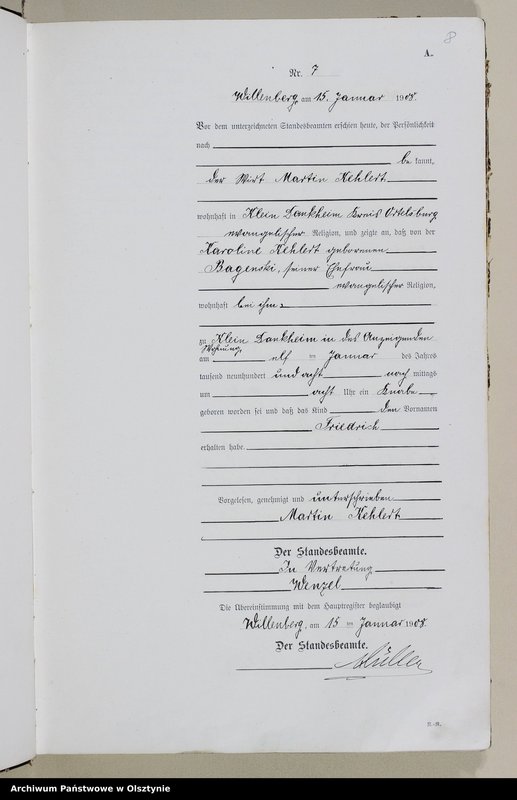 8
A.
Nr. 7
Willenberg am 15. Januar 1908.
Vor dem unterzeichneten Standesbeamten erschien heute, der Persönlichkeit
nach
be kannt,
der Wirt Martin Kehlert
wohnhaft in Klein Dankheim Kreis Ortelsburg
evangelischer Religion, und zeigte an, daß von der
Karoline Kehlert geborenen
Bagenski, seiner Ehefrau
evangelischer Religion,
wohnhaft bei ihm
zu Klein Dankheim in des Anzeigenden
Wohnung,
am elf ten Januar des Jahres
tausend neunhundert und acht nach mittags
um acht Uhr ein Knabe
geboren worden sei und daß das Kind den Vornamen
Friedrich
erhalten habe.
Vorgelesen, genehmigt und unterschrieben
Martin Kehlert
Der Standesbeamte.
In Vertretung
Wenzel
Die Übereinstimmung mit dem Hauptregister beglaubigt
Willenberg, am 15 ten Januar 1908.
Der Standesbeamte.
Müller
Archiwum Państwowe w Olsztynie